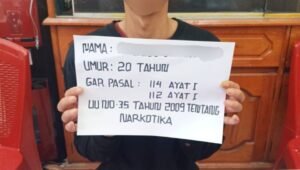 NAMA :
UMUR : 20 TAHUN
GAR PASAL : 114 AYAT I
112 AYAT I
UU NO 35 TAHUN 2009 TENTANG
NARKOTIKA